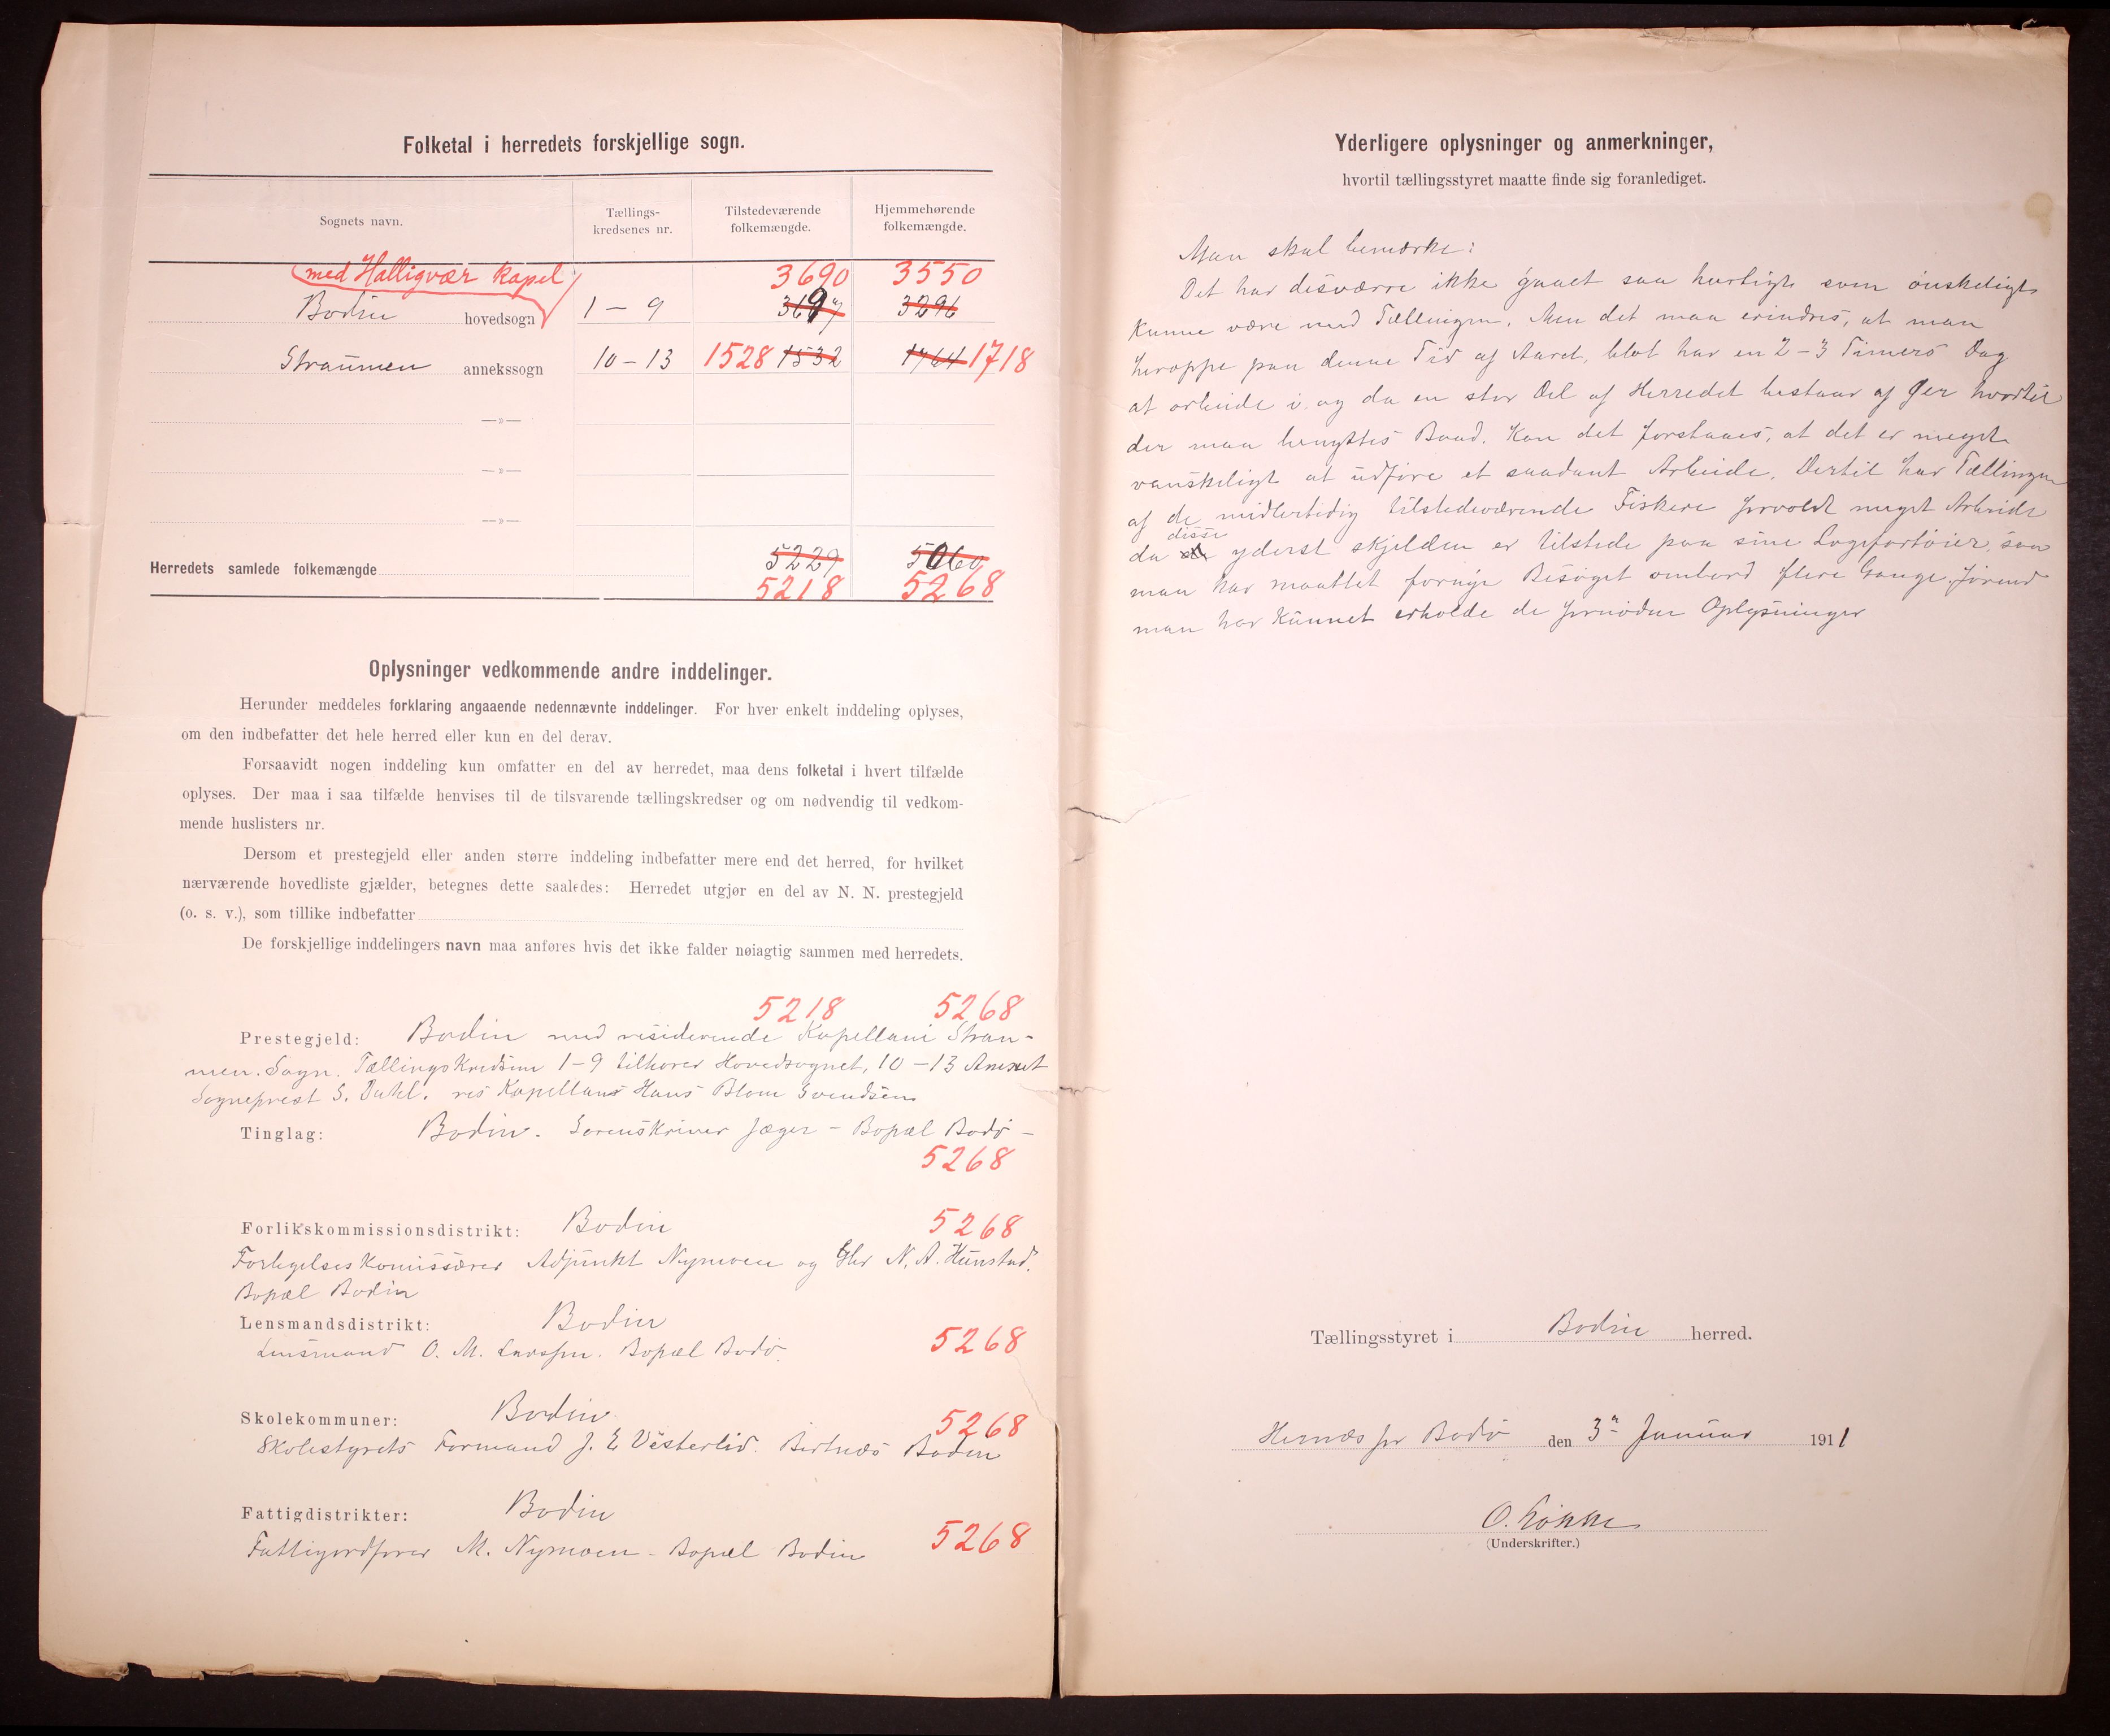 Folketal i herredets forskjellige sogn.
Sognets navn.
Tællings-
kredsenes nr.
Tilstedeværende
folkemængde.
Hjemmehørende
folkemængde.
(med Halligvær kapel) 3690 3550
Bodin hovedsogn 1 – 9 3697 3296
Straumen annekssogn 10 – 13 1528 1532 1764 1718
— » —
— » —
— » —
5229 5060
Herredets samlede folkemængde
5218 5268
Oplysninger vedkommende andre inddelinger.
Herunder meddeles forklaring angaaende nedennævnte inddelinger. For hver enkelt inddeling oplyses,
om den indbefatter det hele herred eller kun en del derav.
Forsaavidt nogen inddeling kun omfatter en del av herredet, maa dens folketal i hvert tilfælde
oplyses. Der maa i saa tilfælde henvises til de tilsvarende tællingskredser og om nødvendig til vedkom-
mende huslisters nr.
Dersom et prestegjeld eller anden større inddeling indbefatter mere end det herred, for hvilket
nærværende hovedliste gjælder, betegnes dette saaledes: Herredet utgjør en del av N. N. prestegjeld
(o. s. v.), som tillike indbefatter
De forskjellige inddelingers navn maa anføres hvis det ikke falder nøiagtig sammen med herredets.
5218 5268
Prestegjeld: Bodin med residerende Kapellani Strau-
men. Sogn. TællingsKredsene 1–9 tilhører Hovedsognet, 10–13 Annext
Sogneprest S. Dahl. res Kapellan Hans Blom Svendsen
Tinglag: Bodin. SorensKriver Jæger – Bopæl Bodö –
5268
Forlikskommissionsdistrikt: Bodin 5268
ForligelsesKomissærer Adjunkt Nymoen og Gbr N. A. Hunstad.
Bopæl Bodin
Lensmandsdistrikt: Bodin
Lensmand O. M. Larssen. Bopæl Bodö. 5268
Skolekommuner: Bodin 5268
Skolestyrets Formand J. E Vesterlid. Bertnes Bodin
Fattigdistrikter: Bodin
Fattigordfører M. Nymoen – Bopæl Bodin 5268
Yderligere oplysninger og anmerkninger,
hvortil tællingsstyret maatte finde sig foranlediget.
Man skal bemærke:
Det har desværre ikke gaaet saa hurtigt som ønskeligt
Kunne være med Tællingen. Men det maa erindres, at man
heroppe paa denne Tid af Aaret, blot har en 2–3 Timers Dag
at arbeide i, og da en stor Del af Herredet bestaar af Øer hvortil
der maa benyttes Baad. Kan det forstaaes, at det er meget
vanskeligt at udføre et saadant Arbeide. Dertil har Tællingen
af de midlertidig tilstedeværende Fiskere forvoldt meget Arbeide
disse
da yderst skjelden er tilstede paa sine Logifartøier, saa
man har maattet fornye Besøget ombord flere Gange, førend
man har Kunnet erholde de fornødne Oplysninger
Tællingsstyret i Bodin herred.
Hernæs pr Bodö den 3 Januar 1911
O. Løkke
(Underskrifter.)